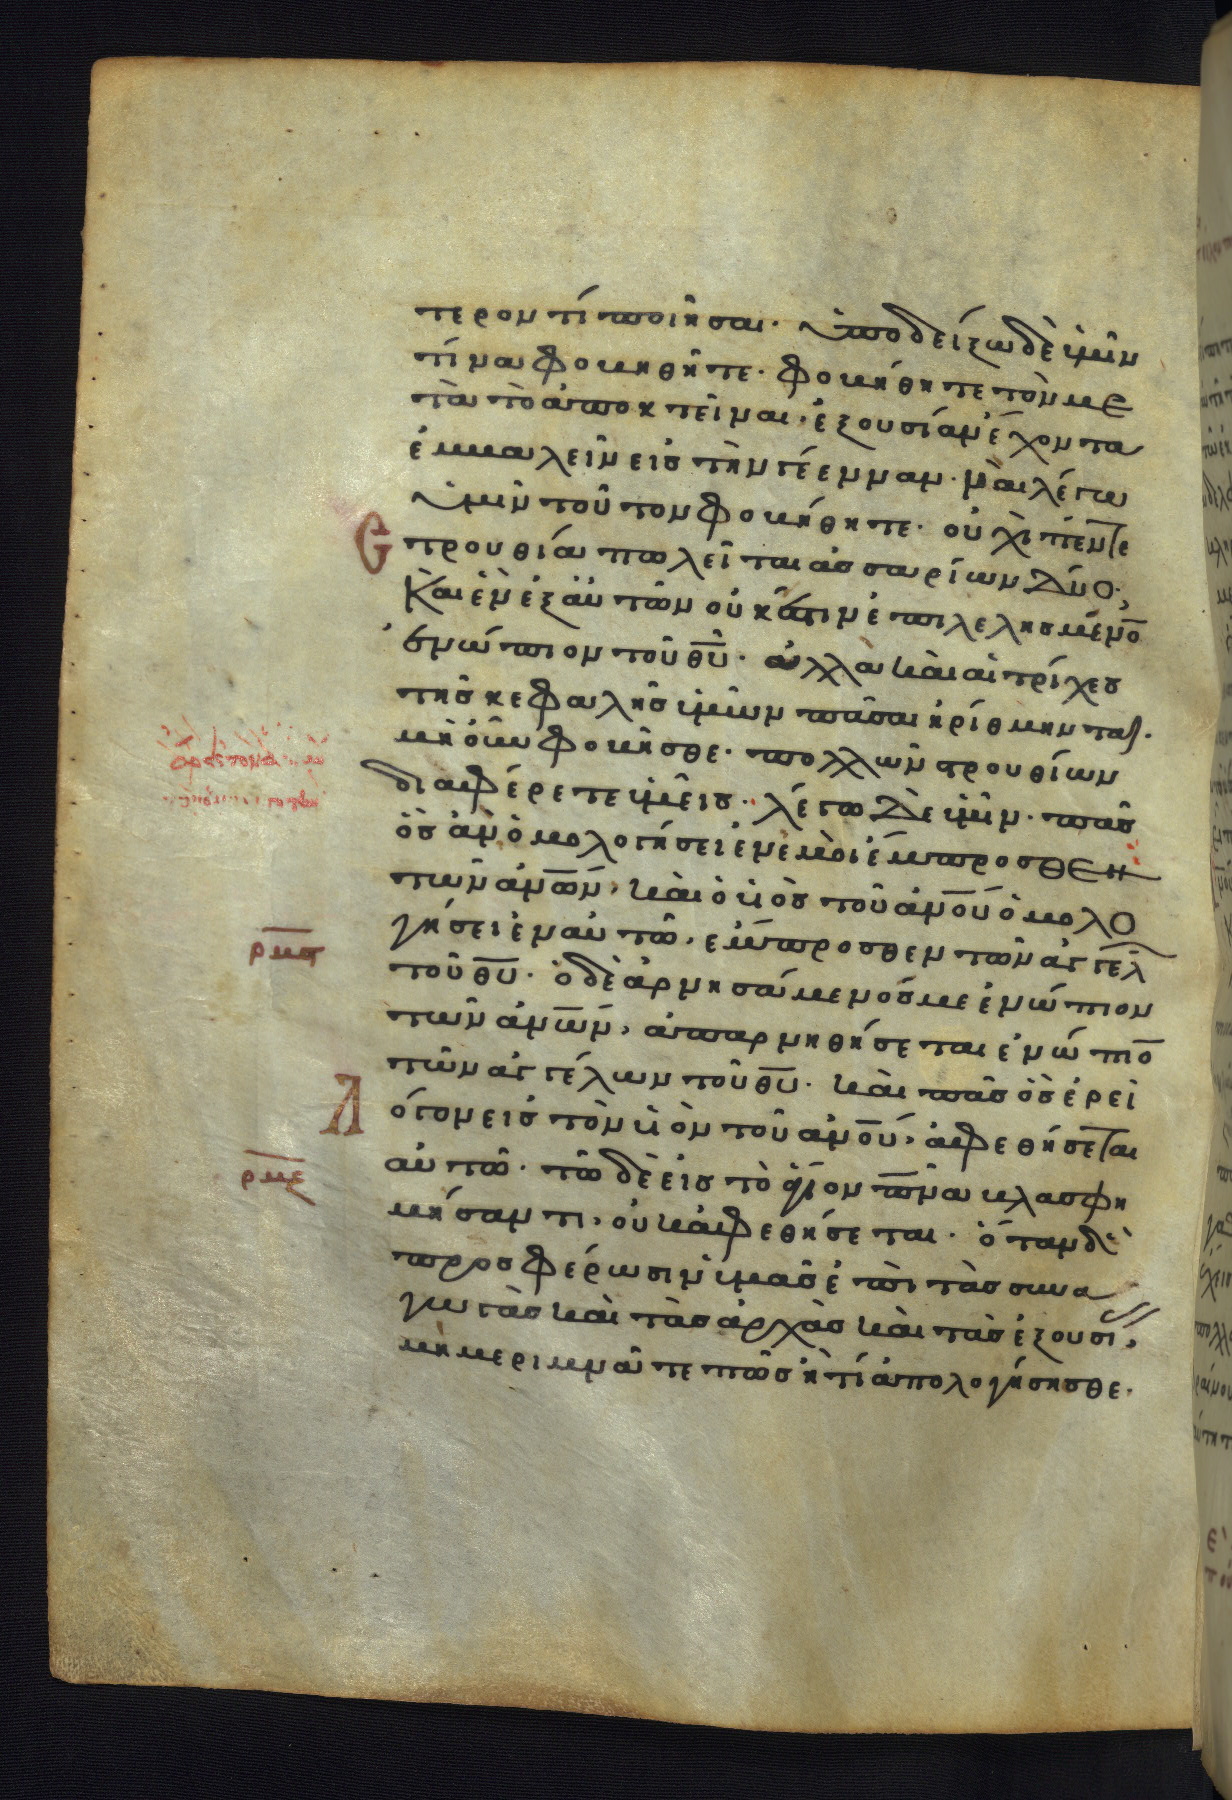 τερον τί ποιῆσαι. ὑποδείξω δὲ ὑμῖν
τίνα φοβηθῆτε. φοβήθητε τὸν με
τὰ τὸ ἀποκτεῖναι, ἐξουσίαν ἔχοντα
ἐμβαλεῖν εἰς τὴν γέενναν. ναὶ λέγω
ὑμῖν τοῦτον φοβήθητε. οὐχὶ πέντε
Ϲ τρουθία πωλεῖται ἀσσαρίων δύο,
Καὶ ἓν ἐξ αὐτῶν οὐκ ἔστιν ἐπιλελησμένο̅
ἐνώπιον τοῦ θ̅υ̅. ἀλλὰ καὶ αἱ τρίχες
τῆς κεφαλῆς ὑμῶν πᾶσαι ἠρίθμηνται.
μὴ οὖν φοβῆσθε. πολλῶν στρουθίων
διαφέρετε ὑμεῖς. λέγω δὲ ὑμῖν. πᾶς
ὃς ἂν ὁμολογήσει ἐν ἐμοὶ ἔμπροσθεν
τῶν ἀν̅ω̅ν, καὶ ὁ υἱὸς τοῦ ἀν̅ο̅υ ὁμολο
γήσει ἐν αὐτῶ, ἔμπροσθεν τῶν ἀγγελ
ρμδ
τοῦ θ̅υ̅. ὁ δὲ ἀρνησάμενός με ἐνώπιον
τῶν ἀν̅ω̅ν, ἀπαρνηθήσεται ἐνώπιο̅
τῶν ἀγγέλων τοῦ θ̅υ̅. καὶ πᾶς ὃς ἐρεῖ
Λ όγον εἰς τὸν υἱὸν τοῦ ἀν̅ο̅υ, ἀφεθήσεται
ρμε
αὐτῶ. τῶ δὲ εἰς τὸ ἅγιον π̅ν̅α βλασφη
μήσαντι, οὐκ ἀφεθήσεται. ὅταν δὲ
προσφέρωσιν ὑμᾶς ἐπὶ τὰς συνα
γωγὰς καὶ τὰς ἀρχὰς καὶ τὰς ἐξουσι,
μὴ μεριμνᾶτε πῶς ἢ τί ἀπολογήσησθε.